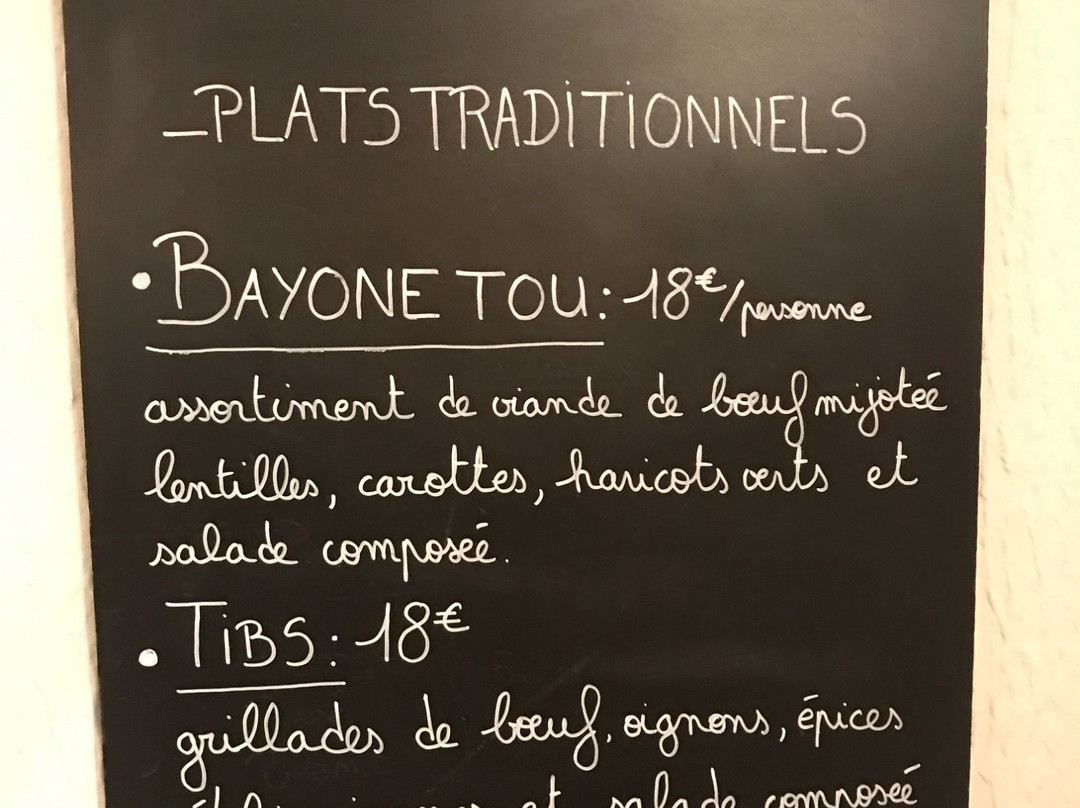 _PLATS TRADITIONNELS
• BAYONE TOU: 18€/personne
assortiment de viande de bœuf mijotée
lentilles, carottes, haricots verts et
salade composée.
• TIBS: 18€
grillades de bœuf, oignons, épices
et salade composée